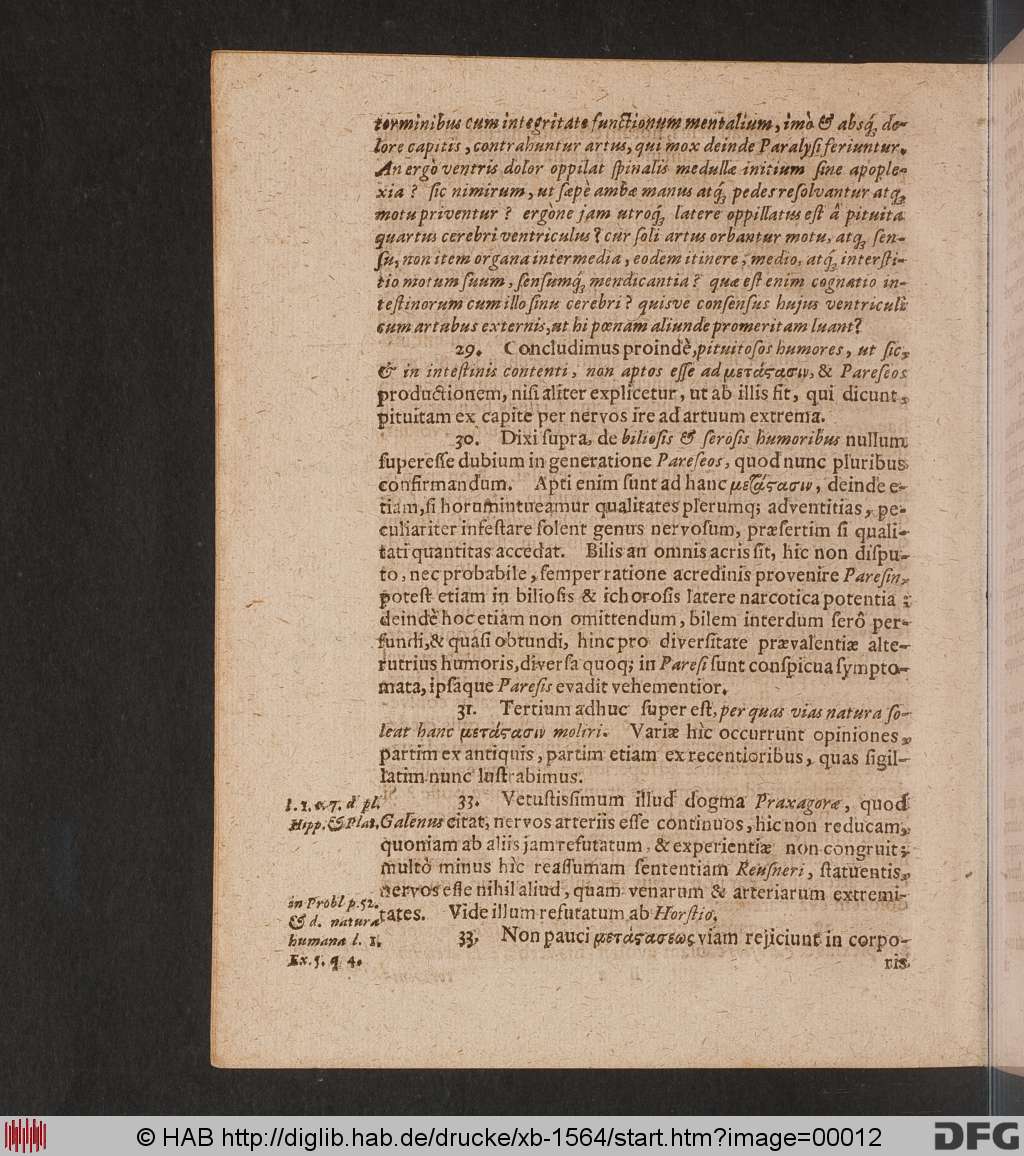 terminibus cum integritate functionum mentalium, imò & absq́; de-
lore capitis, contrahuntur artus, qui mox deinde Paralysi feriuntur.
An ergò ventris dolor oppilat spinalis medullæ initium sine apople-
xia? sic nimirum, ut sæpè ambæ manus atq́; pedes resolvantur atq́;
motu priventur? ergòne jam utroq́; latere oppillatus est â pituita
quartus cerebri ventriculus? cur soli artus orbantur motu, atq; sen-
su, non item organa intermedia, eodem itinere, medio, atq́; intersti-
tio motum suum, sensumq́; mendicantia? quæ est enim cognatio in-
testinorum cum illo sinu cerebri? quisve consensus hujus ventriculi
cum artubus externis, ut hi pœnam aliunde promeritam luant?
29. Concludimus proindè, pituitosos humores, ut sic,
& in intestinis contenti, non aptos esse ad μετάςασιν, & Pareseos
productionem, nisi aliter explicetur, ut ab illis fit, qui dicunt,
pituitam ex capite per nervos ire ad artuum extrema.
30. Dixi supra, de biliosis & serosis humoribus nullum
superesse dubium in generatione Pareseos, quod nunc pluribus
confirmandum. Apti enim sunt ad hanc μετάςασιν, deinde e-
tiam, si horum intueamur qualitates plerumq; adventitias, pe-
culiariter infestare solent genus nervosum, præsertim si quali-
tati quantitas accedat. Bilis an omnis acris sit, hîc non dispu-
to, nec probabile, semper ratione acredinis provenire Paresin,
potest etiam in biliosis & ichorosis latere narcotica potentia:
deindè hoc etiam non omittendum, bilem interdum serô per-
fundi, & quasi obtundi, hinc pro diversitate prævalentiæ alte-
rutrius humoris, diversa quoq; in Paresi sunt conspicua sympto-
mata, ipsaque Paresis evadit vehementior.
31. Tertium adhuc super est, per quas vias natura so-
leat hanc μετάςασιν moliri. Variæ hîc occurrunt opiniones,
partim ex antiquis, partim etiam ex recentioribus, quas sigil-
latim nunc lustrabimus.
33. Vetustissimum illud dogma Praxagoræ, quod
l. 1. & 7. d pl.
Hipp. & Plat.
Galenus citat, nervos arteriis esse continuos, hic non reducam,
quoniam ab aliis jam refutatum, & experientiæ non congruit;
multò minus hîc reassumam sententiam Reusneri, statuentis,
nervos esse nihil aliud, quam venarum & arteriarum extremi-
tates. Vide illum refutatum ab Horstio.
in Probl p. 52.
& d. natura
humana l. 1.
Ex. 5. q 4.
33. Non pauci μετάςασεως viam rejiciunt in corpo-
ris
© HAB http://diglib.hab.de/drucke/xb-1564/start.htm?image=00012
DFG